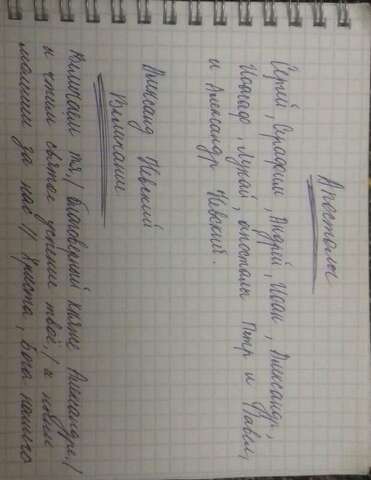 Апостолы
Сергий, Серафим, Андрей, Иоан, Александр,
Иоасаф, Лукай, апостолы Петр и Павел,
и Александр Невский.
Александ Невский
Величание
Величаем тя,/ благоверный княже Александре,/
и чтим святое успение твоё,/ ты бо
молиши за нас // Христа, Бога нашего